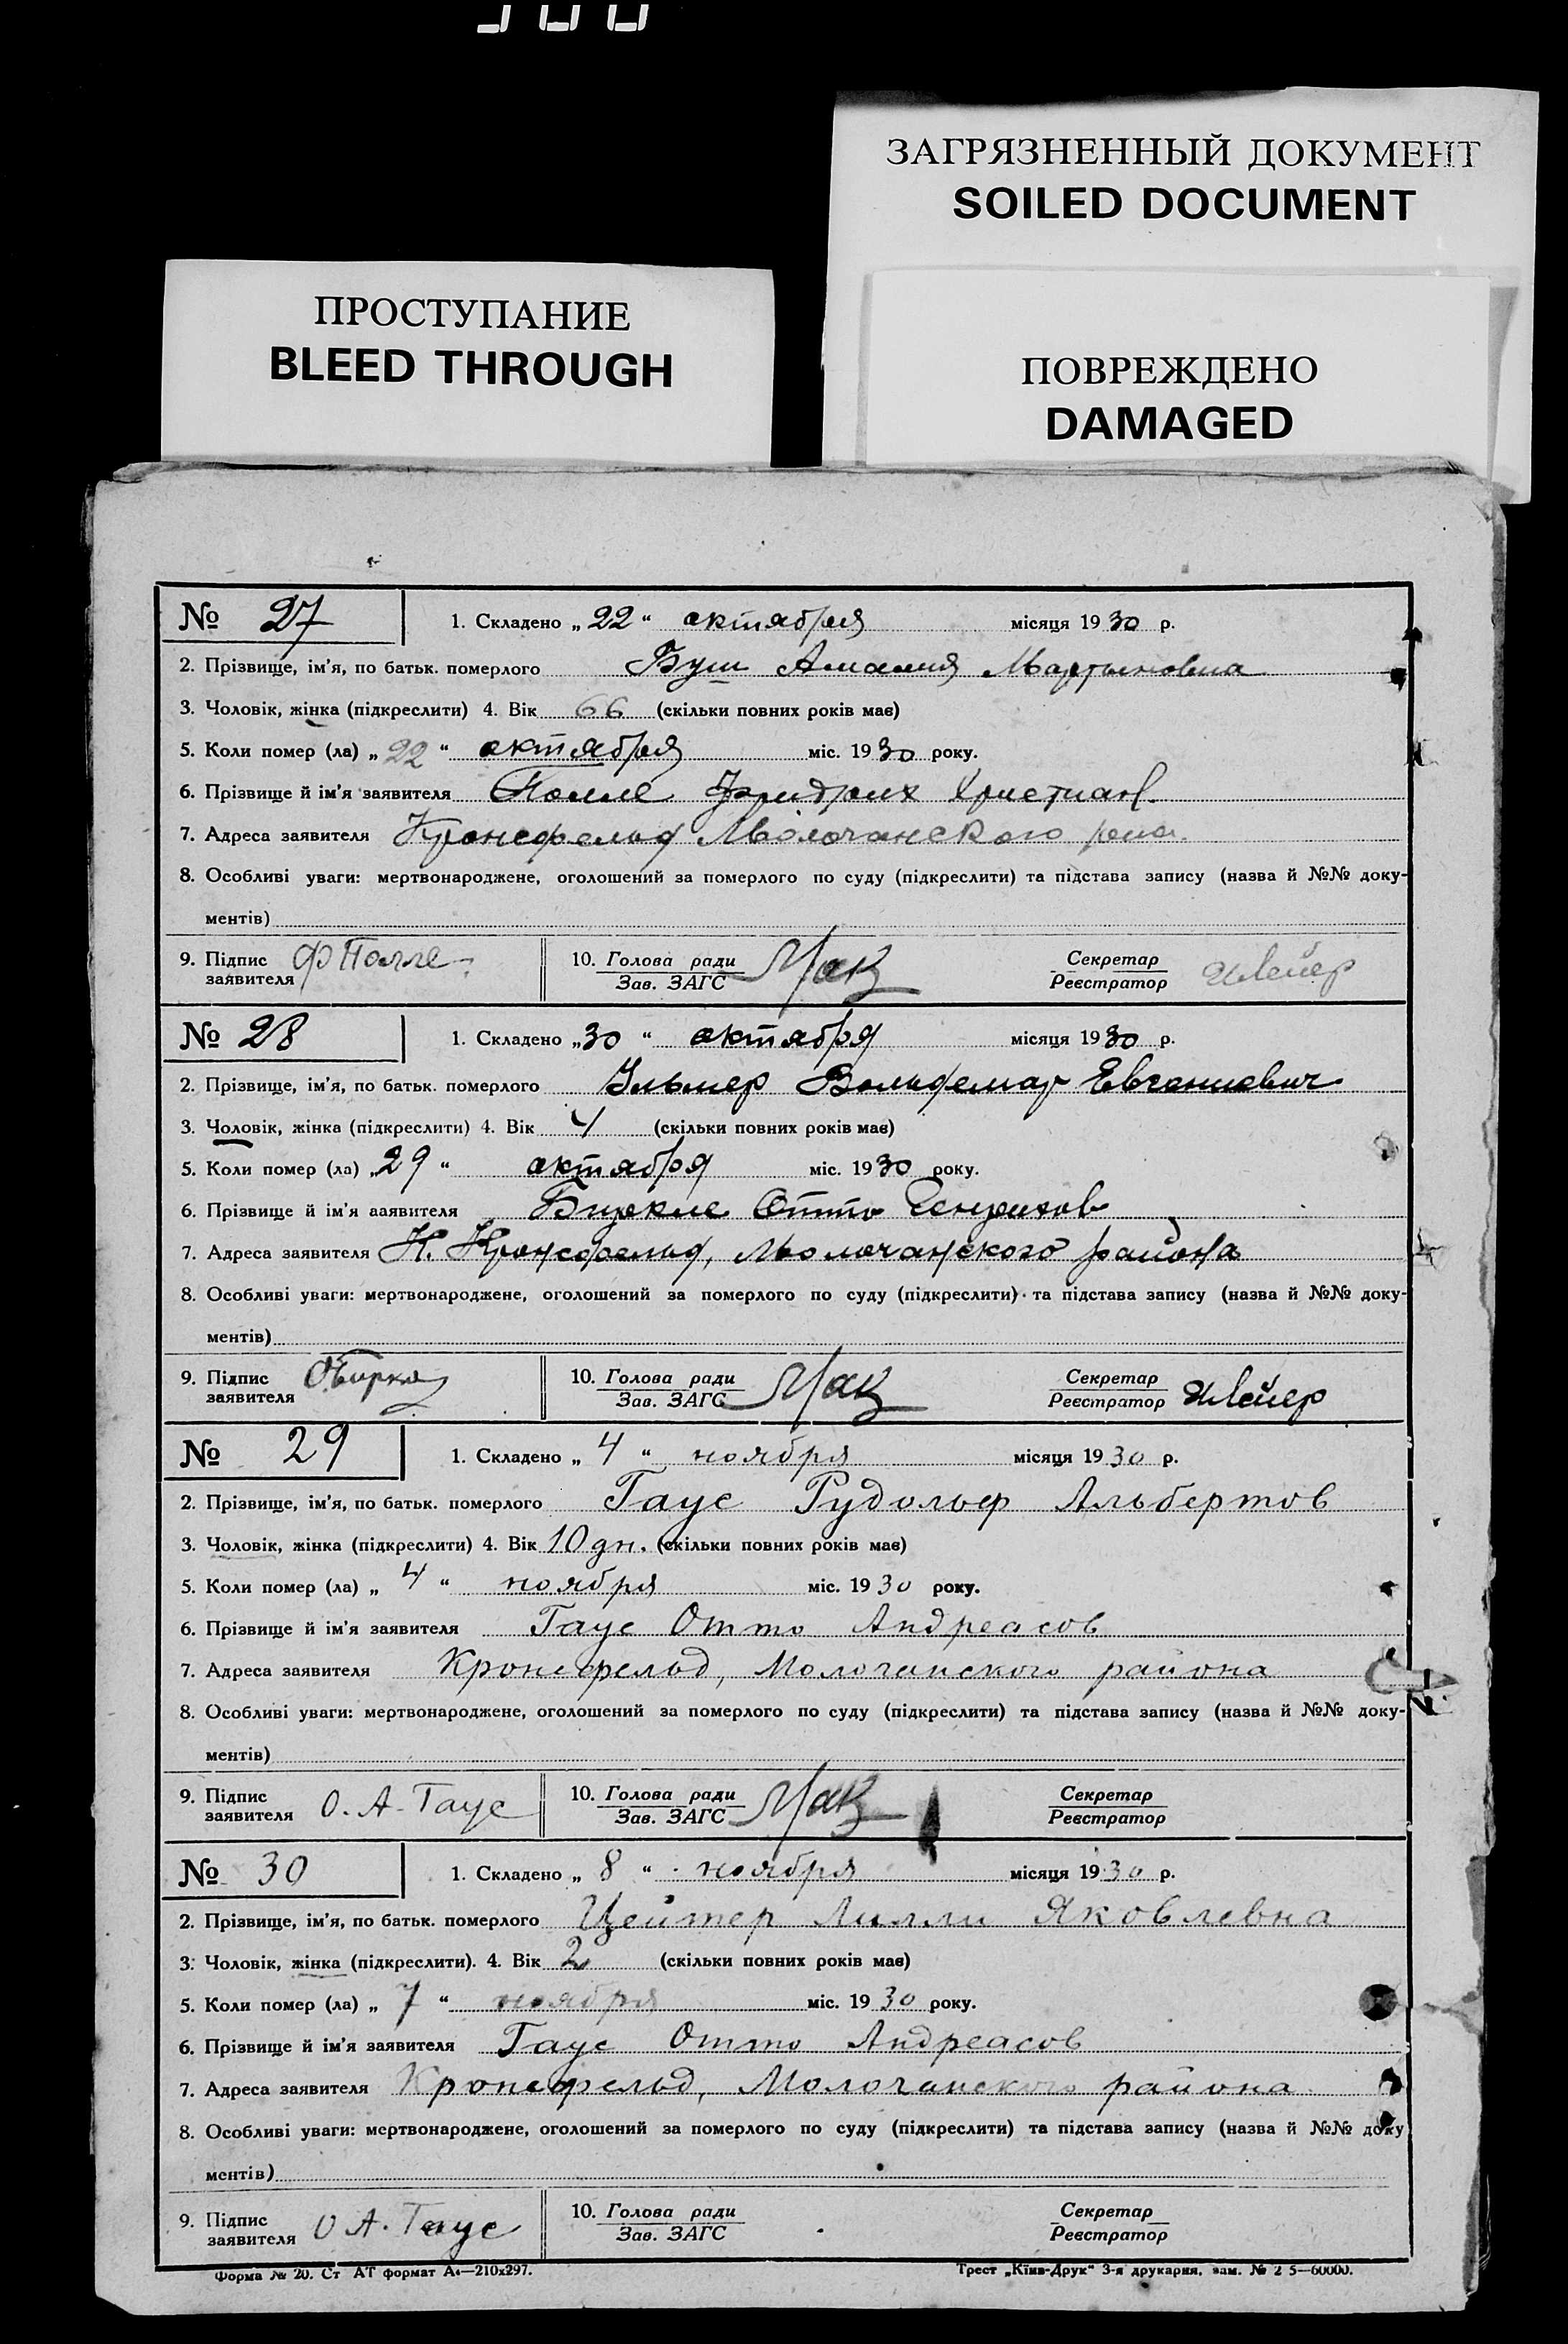 ЗАГРЯЗНЕННЫЙ ДОКУМЕНТ
SOILED DOCUMENT
ПРОСТУПАНИЕ
BLEED THROUGH
ПОВРЕЖДЕНО
DAMAGED
№ 27 1. Складено „22“ октября місяця 1930 р.
2. Прізвище, ім'я, по батьк. померлого Буш Амалия Мартыновна
3. Чоловік, жінка (підкреслити) 4. Вік 66 (скільки повних років має)
5. Коли помер (ла) „22“ октября міс. 1930 року.
6. Прізвище й ім'я заявителя Полле Фридрих Христиан.
7. Адреса заявителя Кронсфельд Молочанского
8. Особливі уваги: мертвонароджене, оголошений за померлого по суду (підкреслити) та підстава запису (назва й №№ доку-
ментів)
9. Підпис заявителя Ф Полле 10. Голова ради Зав. ЗАГС Секретар Реєстратор
№ 28 1. Складено „30“ октября місяця 1930 р.
2. Прізвище, ім'я, по батьк. померлого Ульмер Вольдемар Евгениевич
3. Чоловік, жінка (підкреслити) 4. Вік 4 (скільки повних років має)
5. Коли помер (ла) „29“ октября міс. 1930 року.
6. Прізвище й ім'я заявителя Отто Генрихов
7. Адреса заявителя Н. Кронсфельд, Молочанского района
8. Особливі уваги: мертвонароджене, оголошений за померлого по суду (підкреслити) та підстава запису (назва й №№ доку-
ментів)
9. Підпис заявителя 10. Голова ради Зав. ЗАГС Секретар Реєстратор
№ 29 1. Складено „4“ ноября місяця 1930 р.
2. Прізвище, ім'я, по батьк. померлого Гаус Рудольф Альбертов
3. Чоловік, жінка (підкреслити) 4. Вік 10 дн. (скільки повних років має)
5. Коли помер (ла) „4“ ноября міс. 1930 року.
6. Прізвище й ім'я заявителя Гаус Отто Андреасов
7. Адреса заявителя Кронсфельд, Молочанского района
8. Особливі уваги: мертвонароджене, оголошений за померлого по суду (підкреслити) та підстава запису (назва й №№ доку-
ментів)
9. Підпис заявителя О. А. Гаус 10. Голова ради Зав. ЗАГС Секретар Реєстратор
№ 30 1. Складено „8“ ноября місяця 1930 р.
2. Прізвище, ім'я, по батьк. померлого Цейтер Лилли Яковлевна
3. Чоловік, жінка (підкреслити). 4. Вік 2 (скільки повних років має)
5. Коли помер (ла) „7“ ноября міс. 1930 року.
6. Прізвище й ім'я заявителя Гаус Отто Андреасов
7. Адреса заявителя Кронсфельд, Молочанского района
8. Особливі уваги: мертвонароджене, оголошений за померлого по суду (підкреслити) та підстава запису (назва й №№ доку
ментів)
9. Підпис заявителя О А. Гаус 10. Голова ради Зав. ЗАГС Секретар Реєстратор
Форма № 20. Ст АТ формат А4—210х297. Трест „Київ-Друк“ 3-я друкарня, зам. № 2 5—60000.